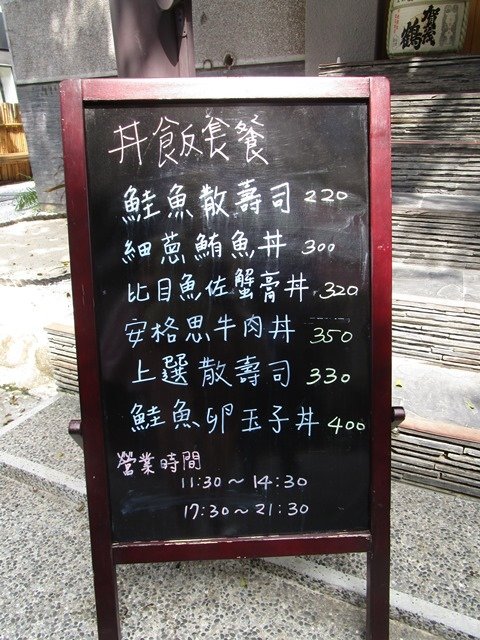 賀茂鶴
丼飯套餐
鮭魚散壽司 220
細蔥鮪魚丼 300
比目魚佐蟹膏丼 320
安格思牛肉丼 350
上選散壽司 330
鮭魚卵玉子丼 400
營業時間
11:30～14:30
17:30～21:30